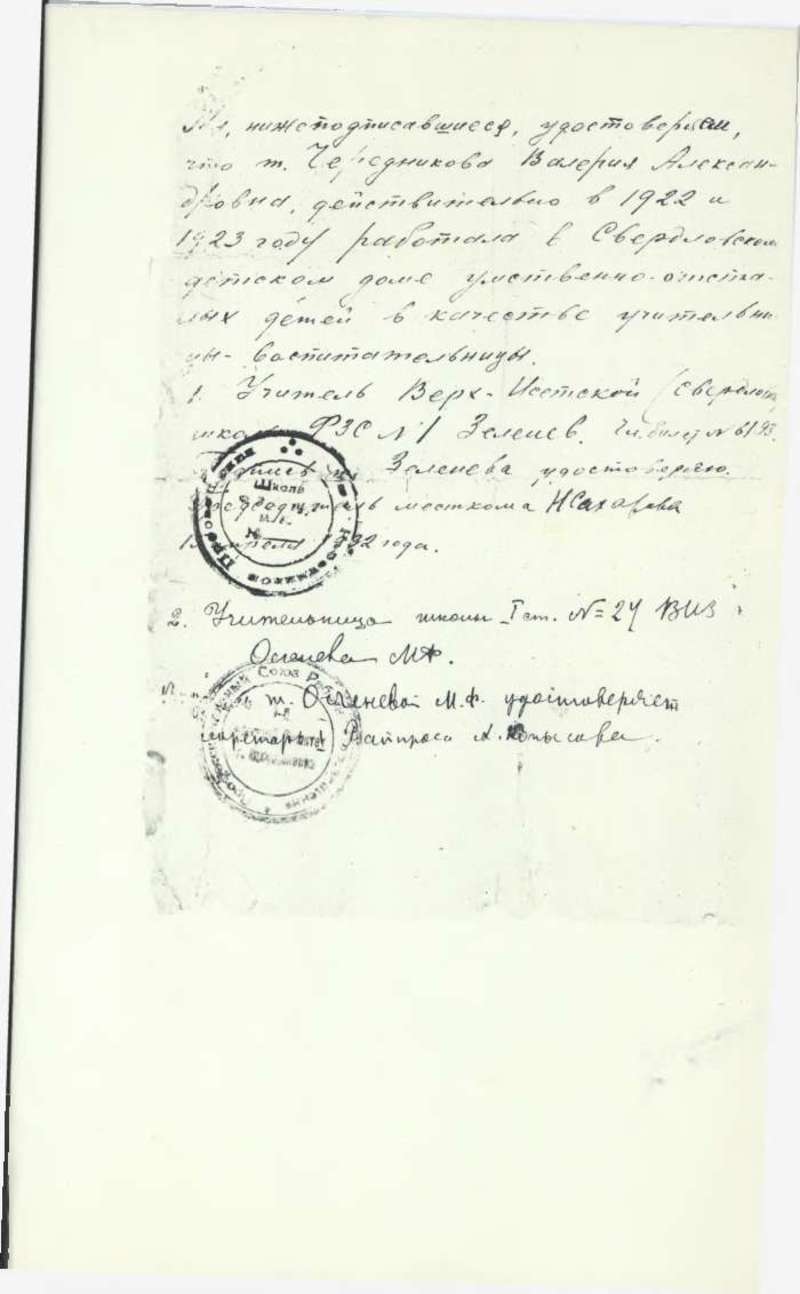 Мы, нижеподписавшиеся, удостоверяем,
что т. Чередникова Валерия Алексан-
дровна, действительно в 1922 и
1923 году работала в Свердловском
детском доме умственно-отста-
лых детей в качестве учительни-
цы-воспитательницы.
1. Учитель Верх-Исетской (Свердловск)
школы ФЗС N 1 Зеленев. Чл. билет N 6193
Подпись т. Зеленева удостоверяю.
Председатель месткома Н Сахарова
апреля 32 года.
Школь
2. Учительница школы I ст. N=24 ВИЗ
Огенева М.Ф.
т. Огеневой М.Ф. удостоверяет
секретарь Райпроса А. Копысова.
Союз